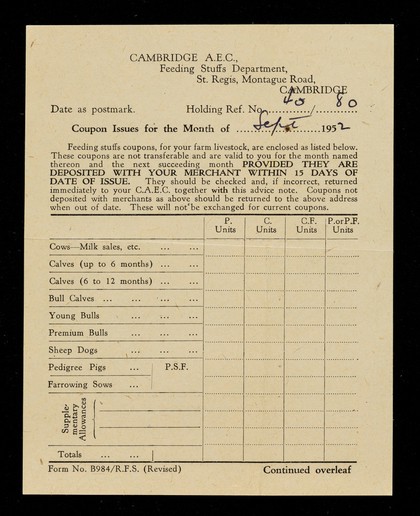 CAMBRIDGE A.E.C.,
Feeding Stuffs Department,
St. Regis, Montague Road,
CAMBRIDGE
Date as postmark. Holding Ref. No. 40 / 80
Coupon Issues for the Month of Sept 1952
Feeding stuffs coupons, for your farm livestock, are enclosed as listed below.
These coupons are not transferable and are valid to you for the month named
thereon and the next succeeding month PROVIDED THEY ARE
DEPOSITED WITH YOUR MERCHANT WITHIN 15 DAYS OF
DATE OF ISSUE. They should be checked and, if incorrect, returned
immediately to your C.A.E.C. together with this advice note. Coupons not
deposited with merchants as above should be returned to the above address
when out of date. These will not be exchanged for current coupons.
P. C. C.F. P. or P.F.
Units Units Units Units
Cows—Milk sales, etc. ... ...
Calves (up to 6 months) ... ...
Calves (6 to 12 months) ... ...
Bull Calves ... ... ...
Young Bulls ... ...
Premium Bulls ... ...
Sheep Dogs ... ...
Pedigree Pigs ... P.S.F.
Farrowing Sows ...
Supple-
mentary
Allowances
Totals ... ...
Form No. B984/R.F.S. (Revised) Continued overleaf